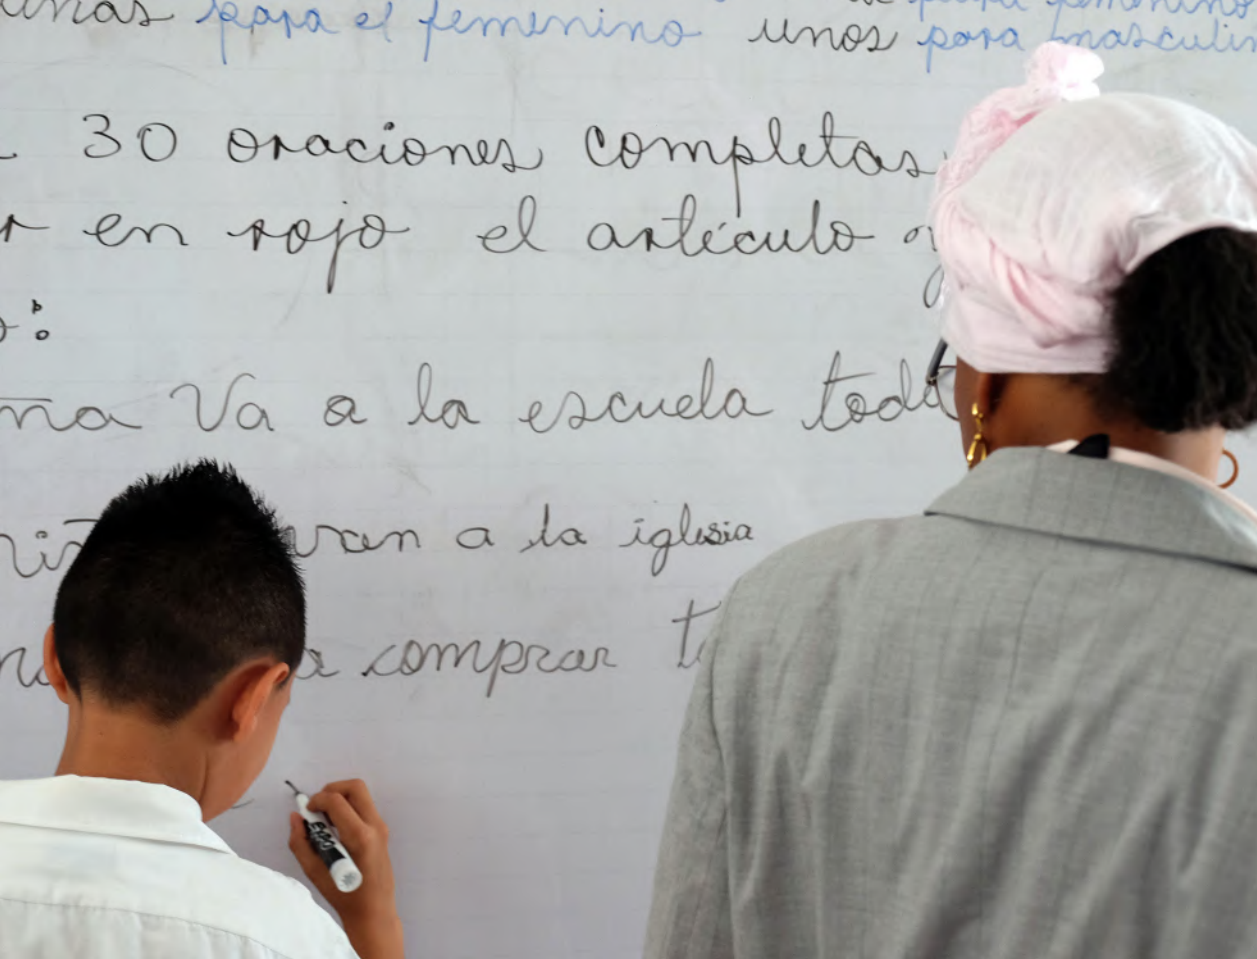 unas para el femenino unos para masculin
30 oraciones completas
r en rojo el artículo
o:
ña va a la escuela tod
niñ van a la iglesia
a comprar t
EXPO